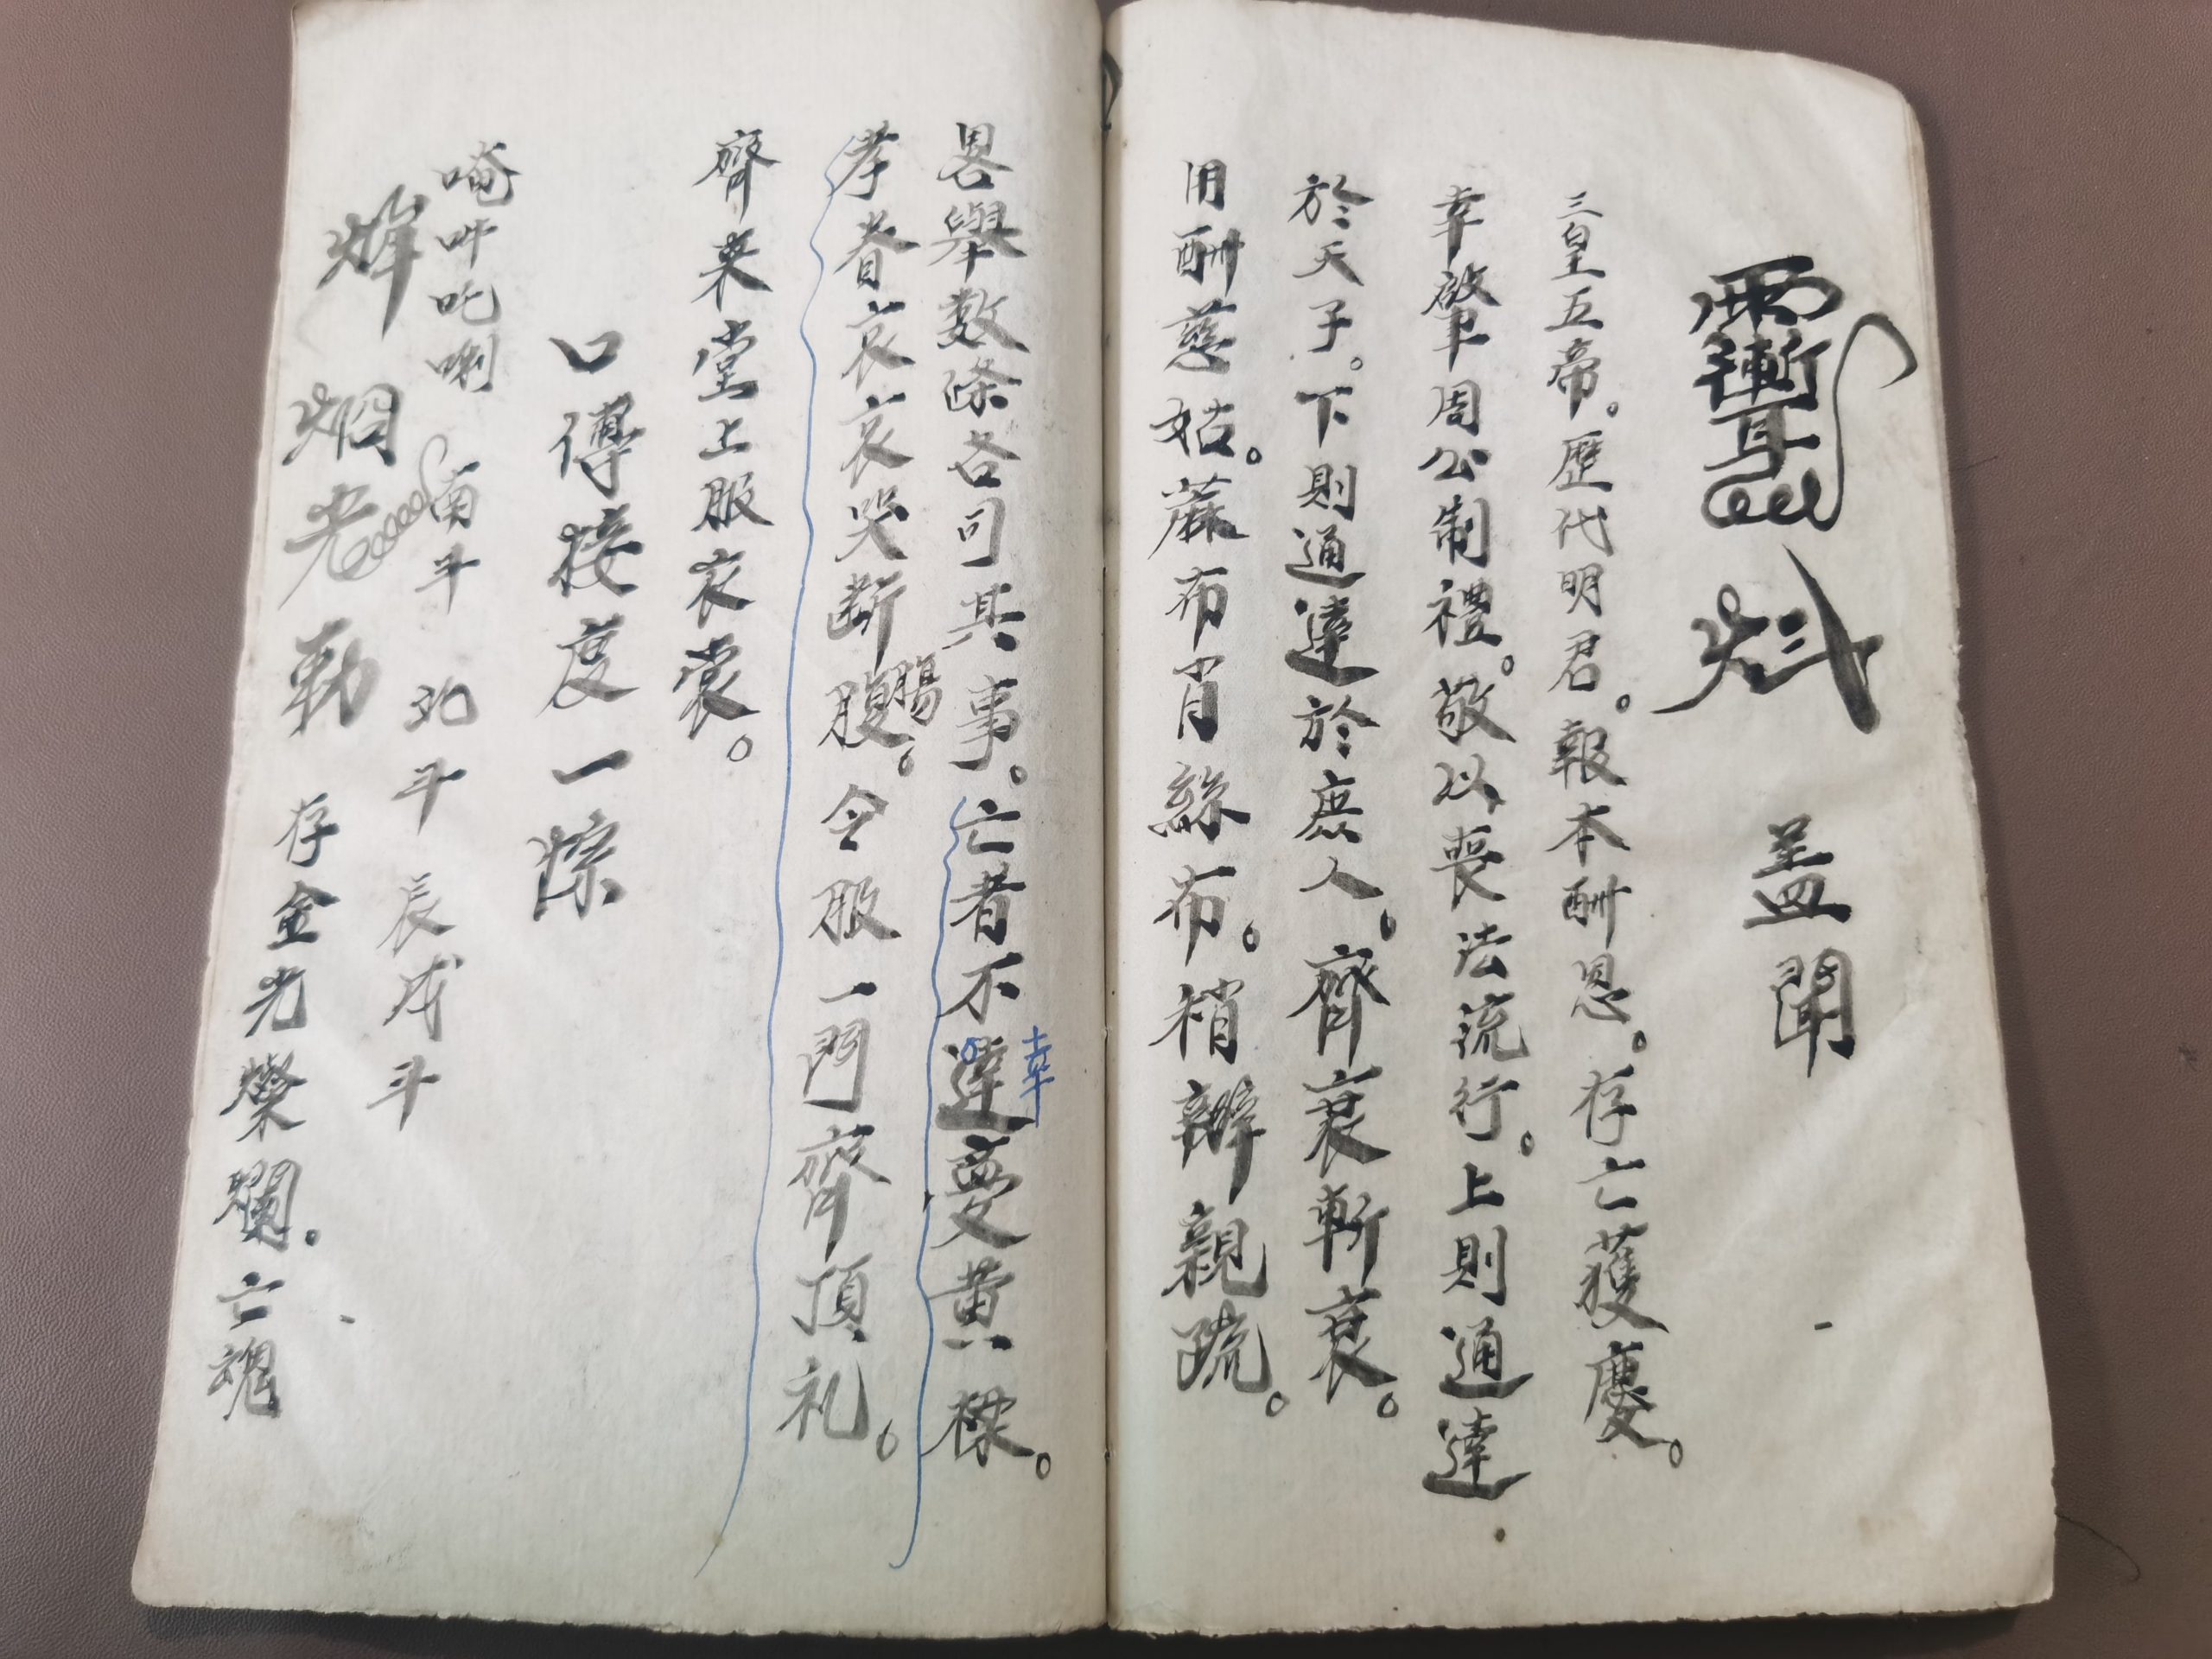 蓋聞
三皇五帝。歷代明君。報本酬恩。存亡獲慶。
幸肇周公制禮。敬以喪法流行。上則通達
於天子。下則通達於庶人。齊衰斬衰。
用酬慈姑。蔴布肖絲布。稍辦親疏。
畧舉數條各司其事。亡者不達夢黄樑。
幸
孝眷哀哀哭断腹。今服一門齊頂礼。
腸
齊来堂上服衣裳。
口傳接度一
唵吽吒唎
南斗 北斗 辰戌斗
勅 存金光燦爛。亡魂